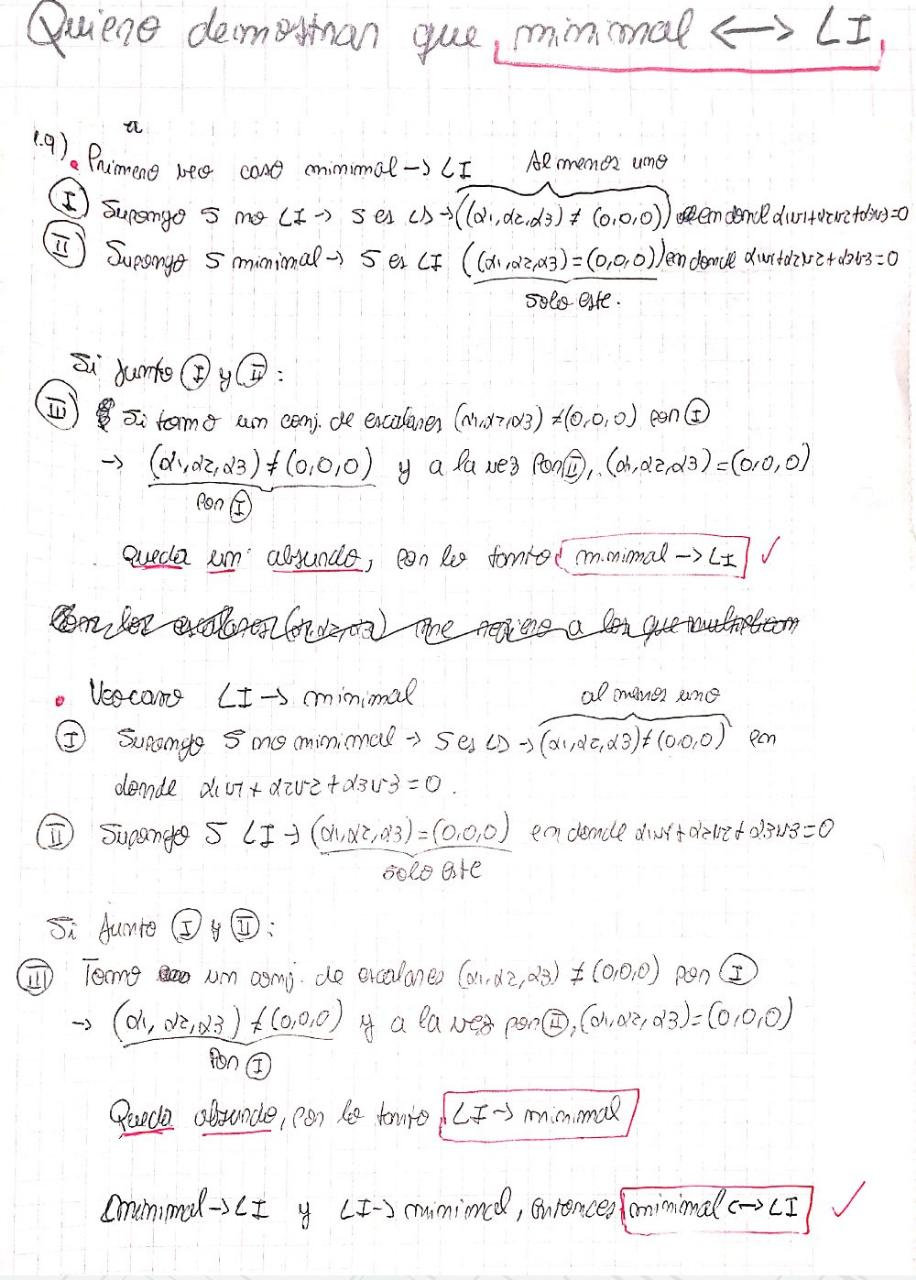 Quiero demostrar que minimal <-> LI
1.9) a
• Primero veo caso minimal -> LI
Al menos uno
I Supongo S no LI -> S es LD -> ((α1, α2, α3) ≠ (0,0,0)) en donde α1v1+α2v2+α3v3=0
II Supongo S minimal -> S es LI ((α1, α2, α3) = (0,0,0)) en donde α1v1+α2v2+α3v3=0
solo este.
Si junto I y II:
III Si tomo un conj. de escalares (α1, α2, α3) ≠ (0,0,0) por I
-> (α1, α2, α3) ≠ (0,0,0) y a la vez por II, (α1, α2, α3) = (0,0,0)
por I
Queda un absurdo, por lo tanto minimal -> LI ✓
• Veo caso LI -> minimal
al menos uno
I Supongo S no minimal -> S es LD -> (α1, α2, α3) ≠ (0,0,0) en
donde α1v1 + α2v2 + α3v3 = 0.
II Supongo S LI -> (α1, α2, α3) = (0,0,0) en donde α1v1 + α2v2 + α3v3 = 0
solo este
Si junto I y II:
III Tomo un conj. de escalares (α1, α2, α3) ≠ (0,0,0) por I
-> (α1, α2, α3) ≠ (0,0,0) y a la vez por II, (α1, α2, α3) = (0,0,0)
Por I
Queda absurdo, por lo tanto LI -> minimal
minimal -> LI y LI -> minimal, entonces minimal <-> LI ✓